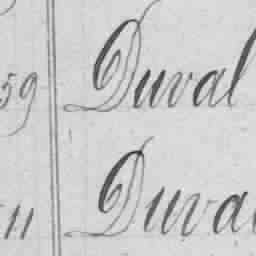 59 Duval
11 Duval